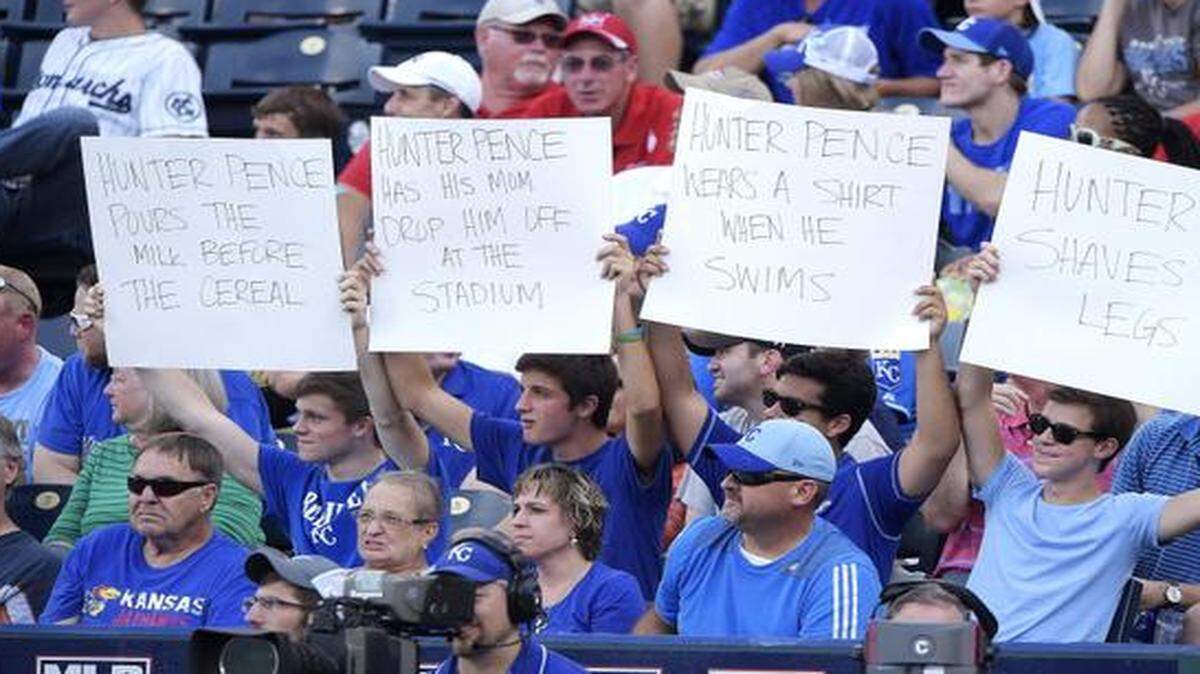 HUNTER PENCE
POURS THE
MILK BEFORE
THE CEREAL
HUNTER PENCE
HAS HIS MOM
DROP HIM OFF
AT THE
STADIUM
HUNTER PENCE
WEARS A SHIRT
WHEN HE
SWIMS
HUNTER
SHAVES
LEGS
Monarchs
KC
KC
KC
KANSAS
KC
KC
C